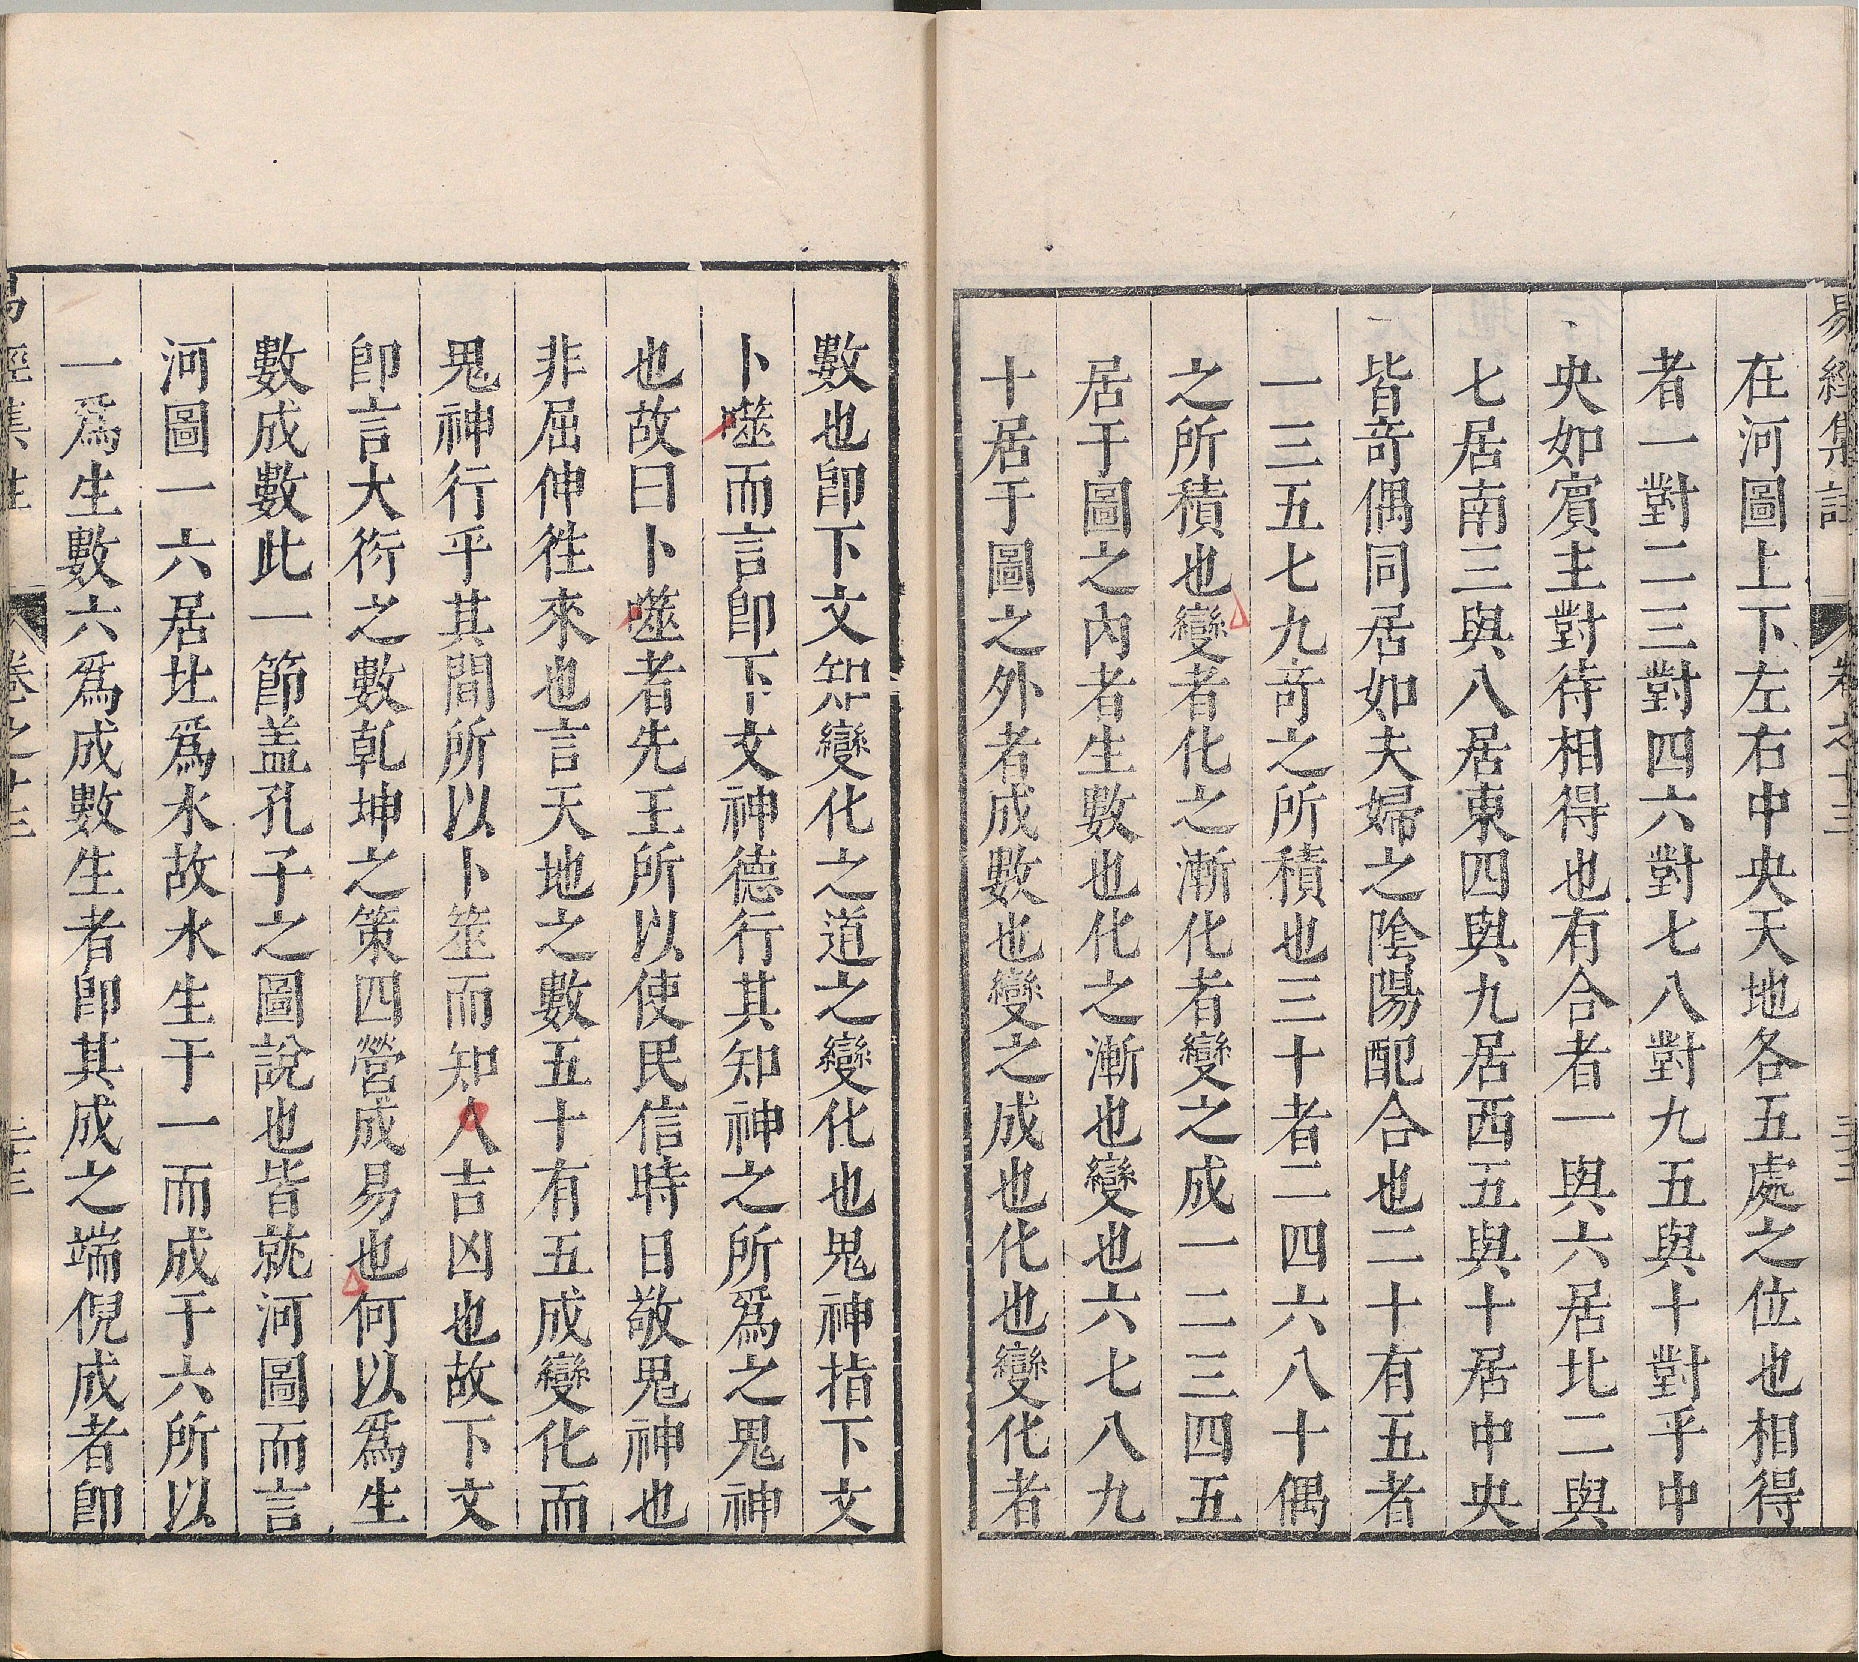 易經集註 卷之十三
在河圖上下左右中央天地各五處之位也相得
者一對二三對四六對七八對九五與十對乎中
央如賓主對待相得也有合者一與六居北二與
七居南三與八居東四與九居西五與十居中央
皆竒偶同居如夫婦之陰陽配合也二十有五者
一三五七九竒之所積也三十者二四六八十偶
之所積也變者化之漸化者變之成一二三四五
居于圖之內者生數也化之漸也變也六七八九
十居于圖之外者成數也變之成也化也變化者
數也卽下文知變化之道之變化也鬼神指下文
卜噬而言卽下文神德行其知神之所爲之鬼神
也故曰卜噬者先王所以使民信時日敬鬼神也
非屈伸徃來也言天地之數五十有五成變化而
鬼神行乎其間所以卜筮而知人吉凶也故下文
卽言大衍之數乾坤之策四營成易也何以爲生
數成數此一節盖孔子之圖說也皆就河圖而言
河圖一六居北爲水故水生于一而成于六所以
一爲生數六爲成數生者卽其成之端倪成者卽
易經集註 卷之十三